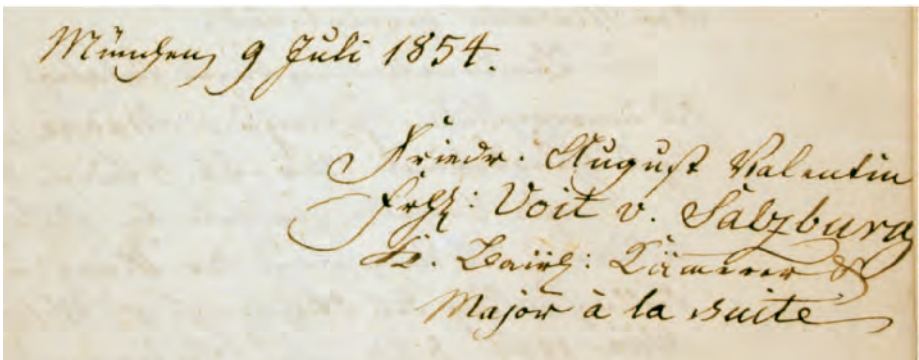 München, 9 Juli 1854.
Friedr. August Valentin
Frhr: Voit v. Salzburg
K. Bairh: Kämerer &
Major à la suite